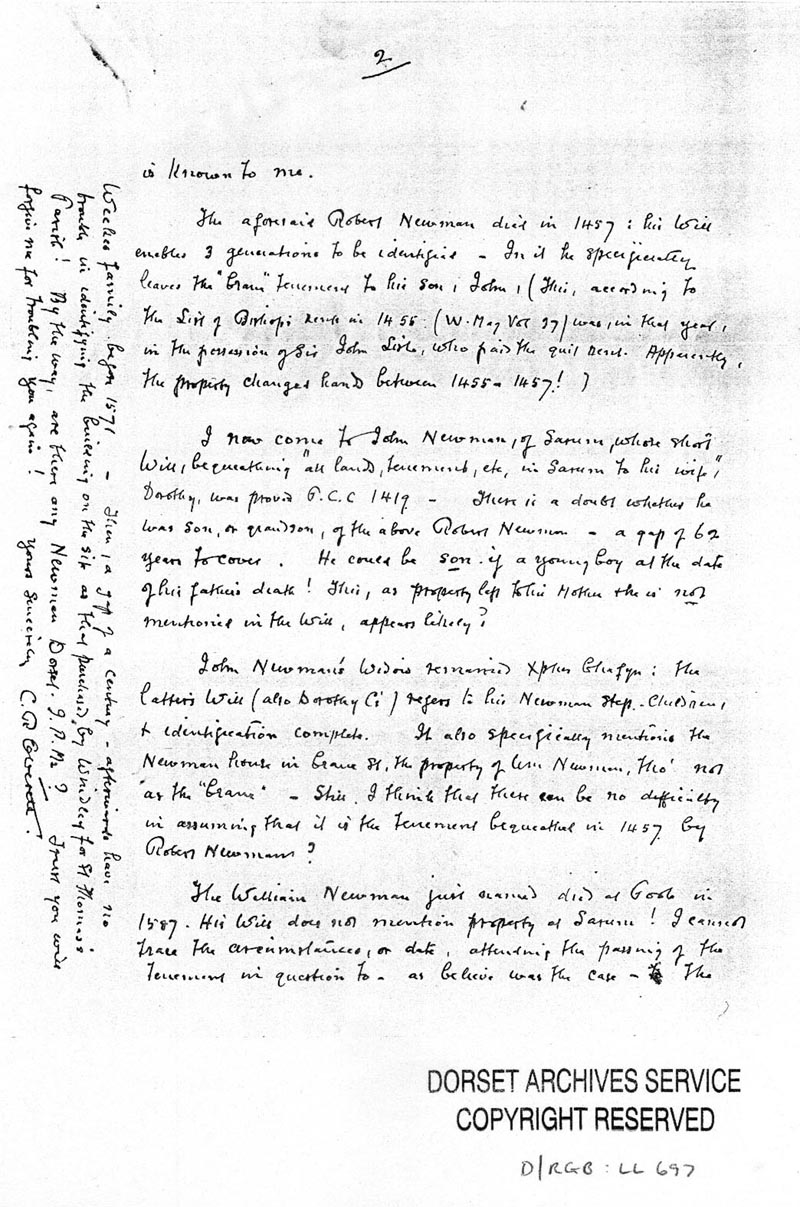 2
is known to me.
The aforesaid Robert Newman died in 1457 : his Will
enables 3 generations to be identified – In it he specifically
leaves the "Crane" tenement to his son, John, (This, according to
the List of Bishop's rents in 1455 (W. Mag Vol 37) was, in that year,
in the possession of Sir John Lisle, who paid the quit rent. Apparently,
the property changed hands between 1455 – 1457! )
I now come to John Newman, of Sarum, whose short
Will, bequeathing "all lands, tenements, etc, in Sarum to his wife",
Dorothy, was proved P.C.C 1419 – There is a doubt whether he
was son, or grandson, of the above Robert Newman – a gap of 62
years to cover. He could be son if a young boy at the date
of his father's death! This, as property left to his Mother & he is not
mentioned in the Will, appears likely?
John Newman's Widow remarried Xpher Chafyn : the
latter's Will (also Dorothy C's) refers to his Newman Step-Children,
& identification complete. It also specifically mentions the
Newman house in Crane St, the property of Wm Newman, tho' not
as the "Crane" – Still, I think that there can be no difficulty
in assuming that it is the tenement bequeathed in 1457 by
Robert Newman?
The William Newman just named died at in
1587. His Will does not mention property at Sarum! I cannot
trace the circumstances, or date, attending the passing of the
tenement in question to – as believe was the case – the
family began 1571 – Then, a gap of a century – afterwards have no
trouble in identifying the building on the site as that purchased by for St Thomas's
Parish! By the way, are there any Newman Dorset. I.P.Ms? Trust you will
forgive me for troubling you again! Yours Sincerely C. R. Everett.
DORSET ARCHIVES SERVICE
COPYRIGHT RESERVED
D/RGB : LL 697